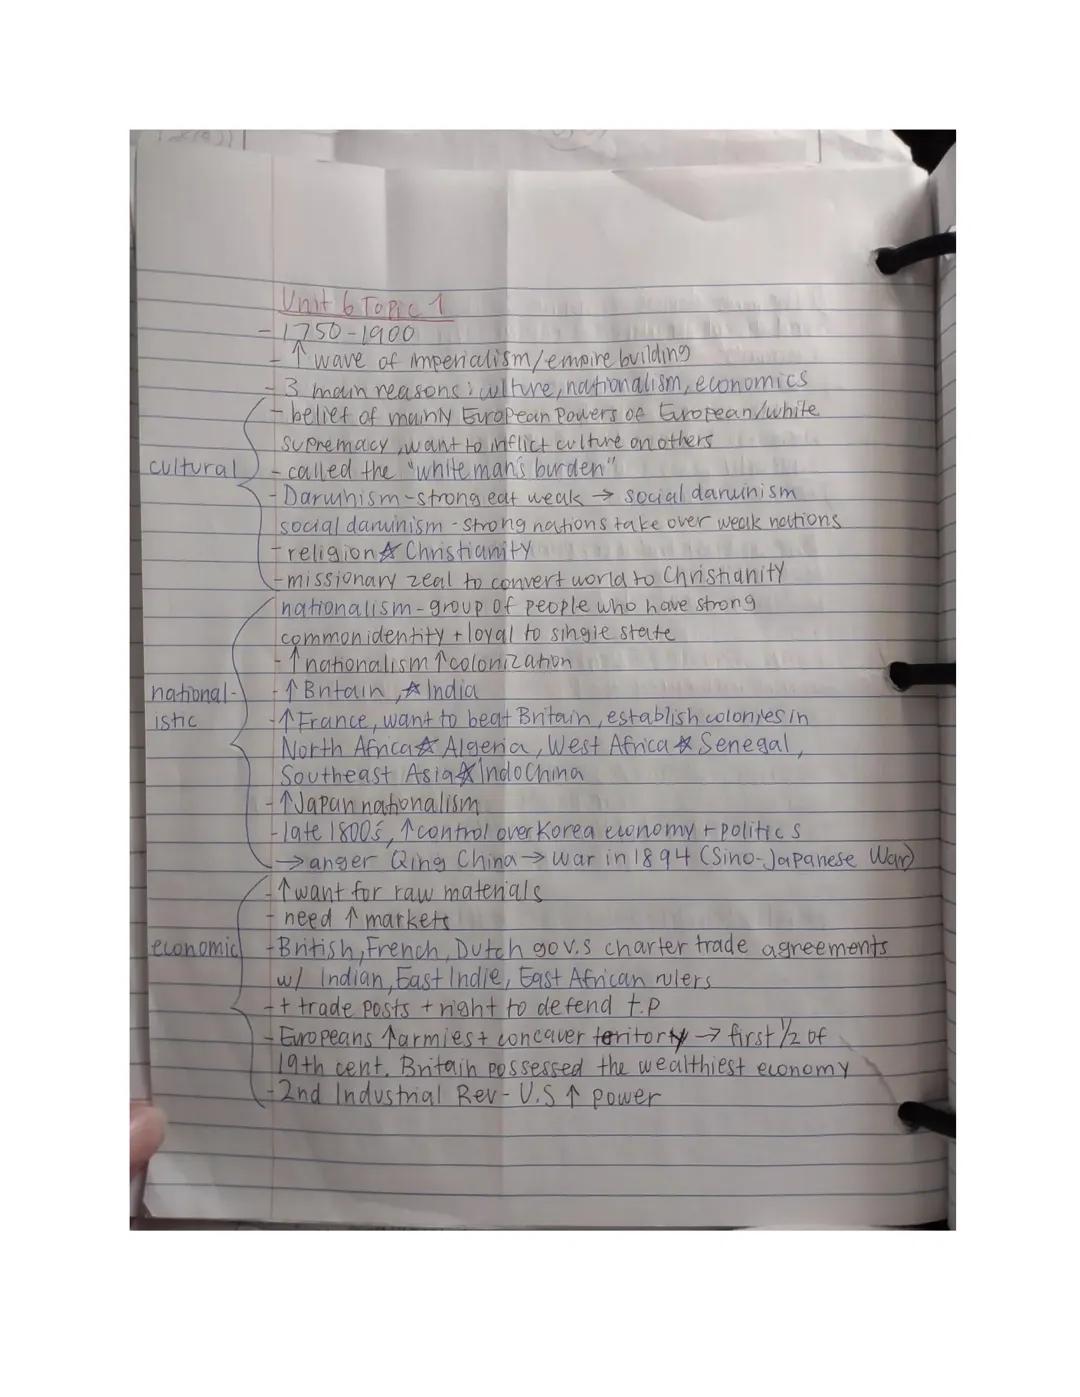 Unit 6 Topic 1
- 1750-1900
- ↑ wave of imperialism/empire building
- 3 main reasons: culture, nationalism, economics
- belief of mainly European Powers of European/white
supremacy, want to inflict culture on others
cultural - called the "white man's burden"
- Darwinism - strong eat weak → social darwinism
social darwinism - strong nations take over weak nations
- religion ☆ Christianity
- missionary zeal to convert world to Christianity
nationalism - group of people who have strong
common identity + loyal to single state
- ↑ nationalism ↑ colonization
national- - ↑ Britain, ☆ India
istic - ↑ France, want to beat Britain, establish colonies in
North Africa ☆ Algeria, West Africa ☆ Senegal,
Southeast Asia ☆ IndoChina
- ↑ Japan nationalism
- late 1800s, ↑ control over Korea economy + politics
→ anger Qing China → war in 1894 (Sino-Japanese War)
- ↑ want for raw materials
- need ↑ markets
economic - British, French, Dutch gov.s charter trade agreements
w/ Indian, East Indie, East African rulers
- + trade posts + right to defend t.p
- Europeans ↑ armies + concauer teritorty → first 1/2 of
19th cent. Britain possessed the wealthiest economy
- 2nd Industrial Rev - U.S ↑ power